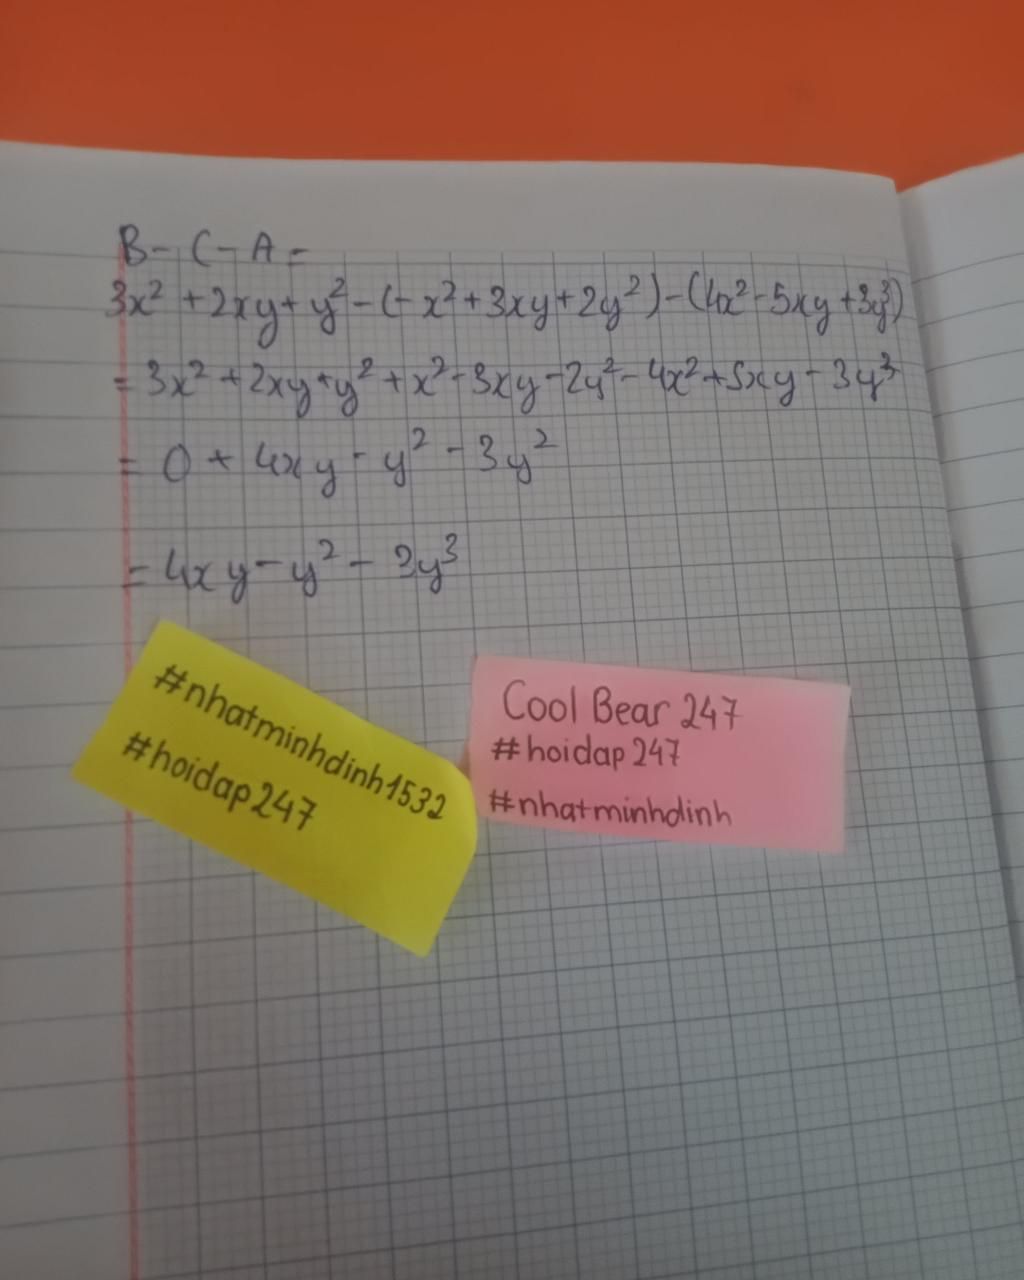 B - C - A =
3x² + 2xy + y² - (- x² + 3xy + 2y²) - (4x² - 5xy + 3y³)
= 3x² + 2xy + y² + x² - 3xy - 2y² - 4x² + 5xy - 3y³
= 0 + 4xy - y² - 3y²
= 4xy - y² - 3y³
#nhatminhdinh1532
#hoidap247
Cool Bear 247
#hoidap 247
#nhatminhdinh